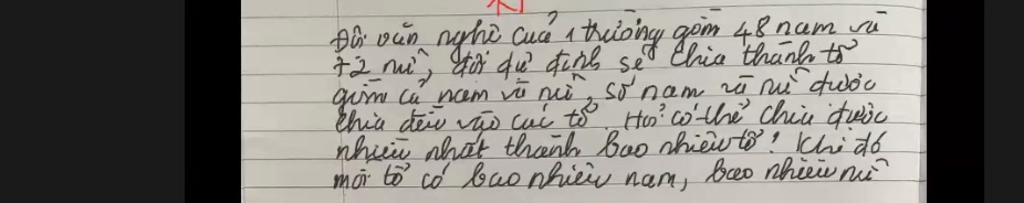 Đội văn nghệ của 1 trường gồm 48 nam và
72 nữ, đội dự định sẽ chia thành tổ
gồm cả nam và nữ, số nam và nữ được
chia đều vào các tổ Hỏi có thể chia được
nhiều nhất thành bao nhiêu tổ? Khi đó
mỗi tổ có bao nhiêu nam, bao nhiêu nữ